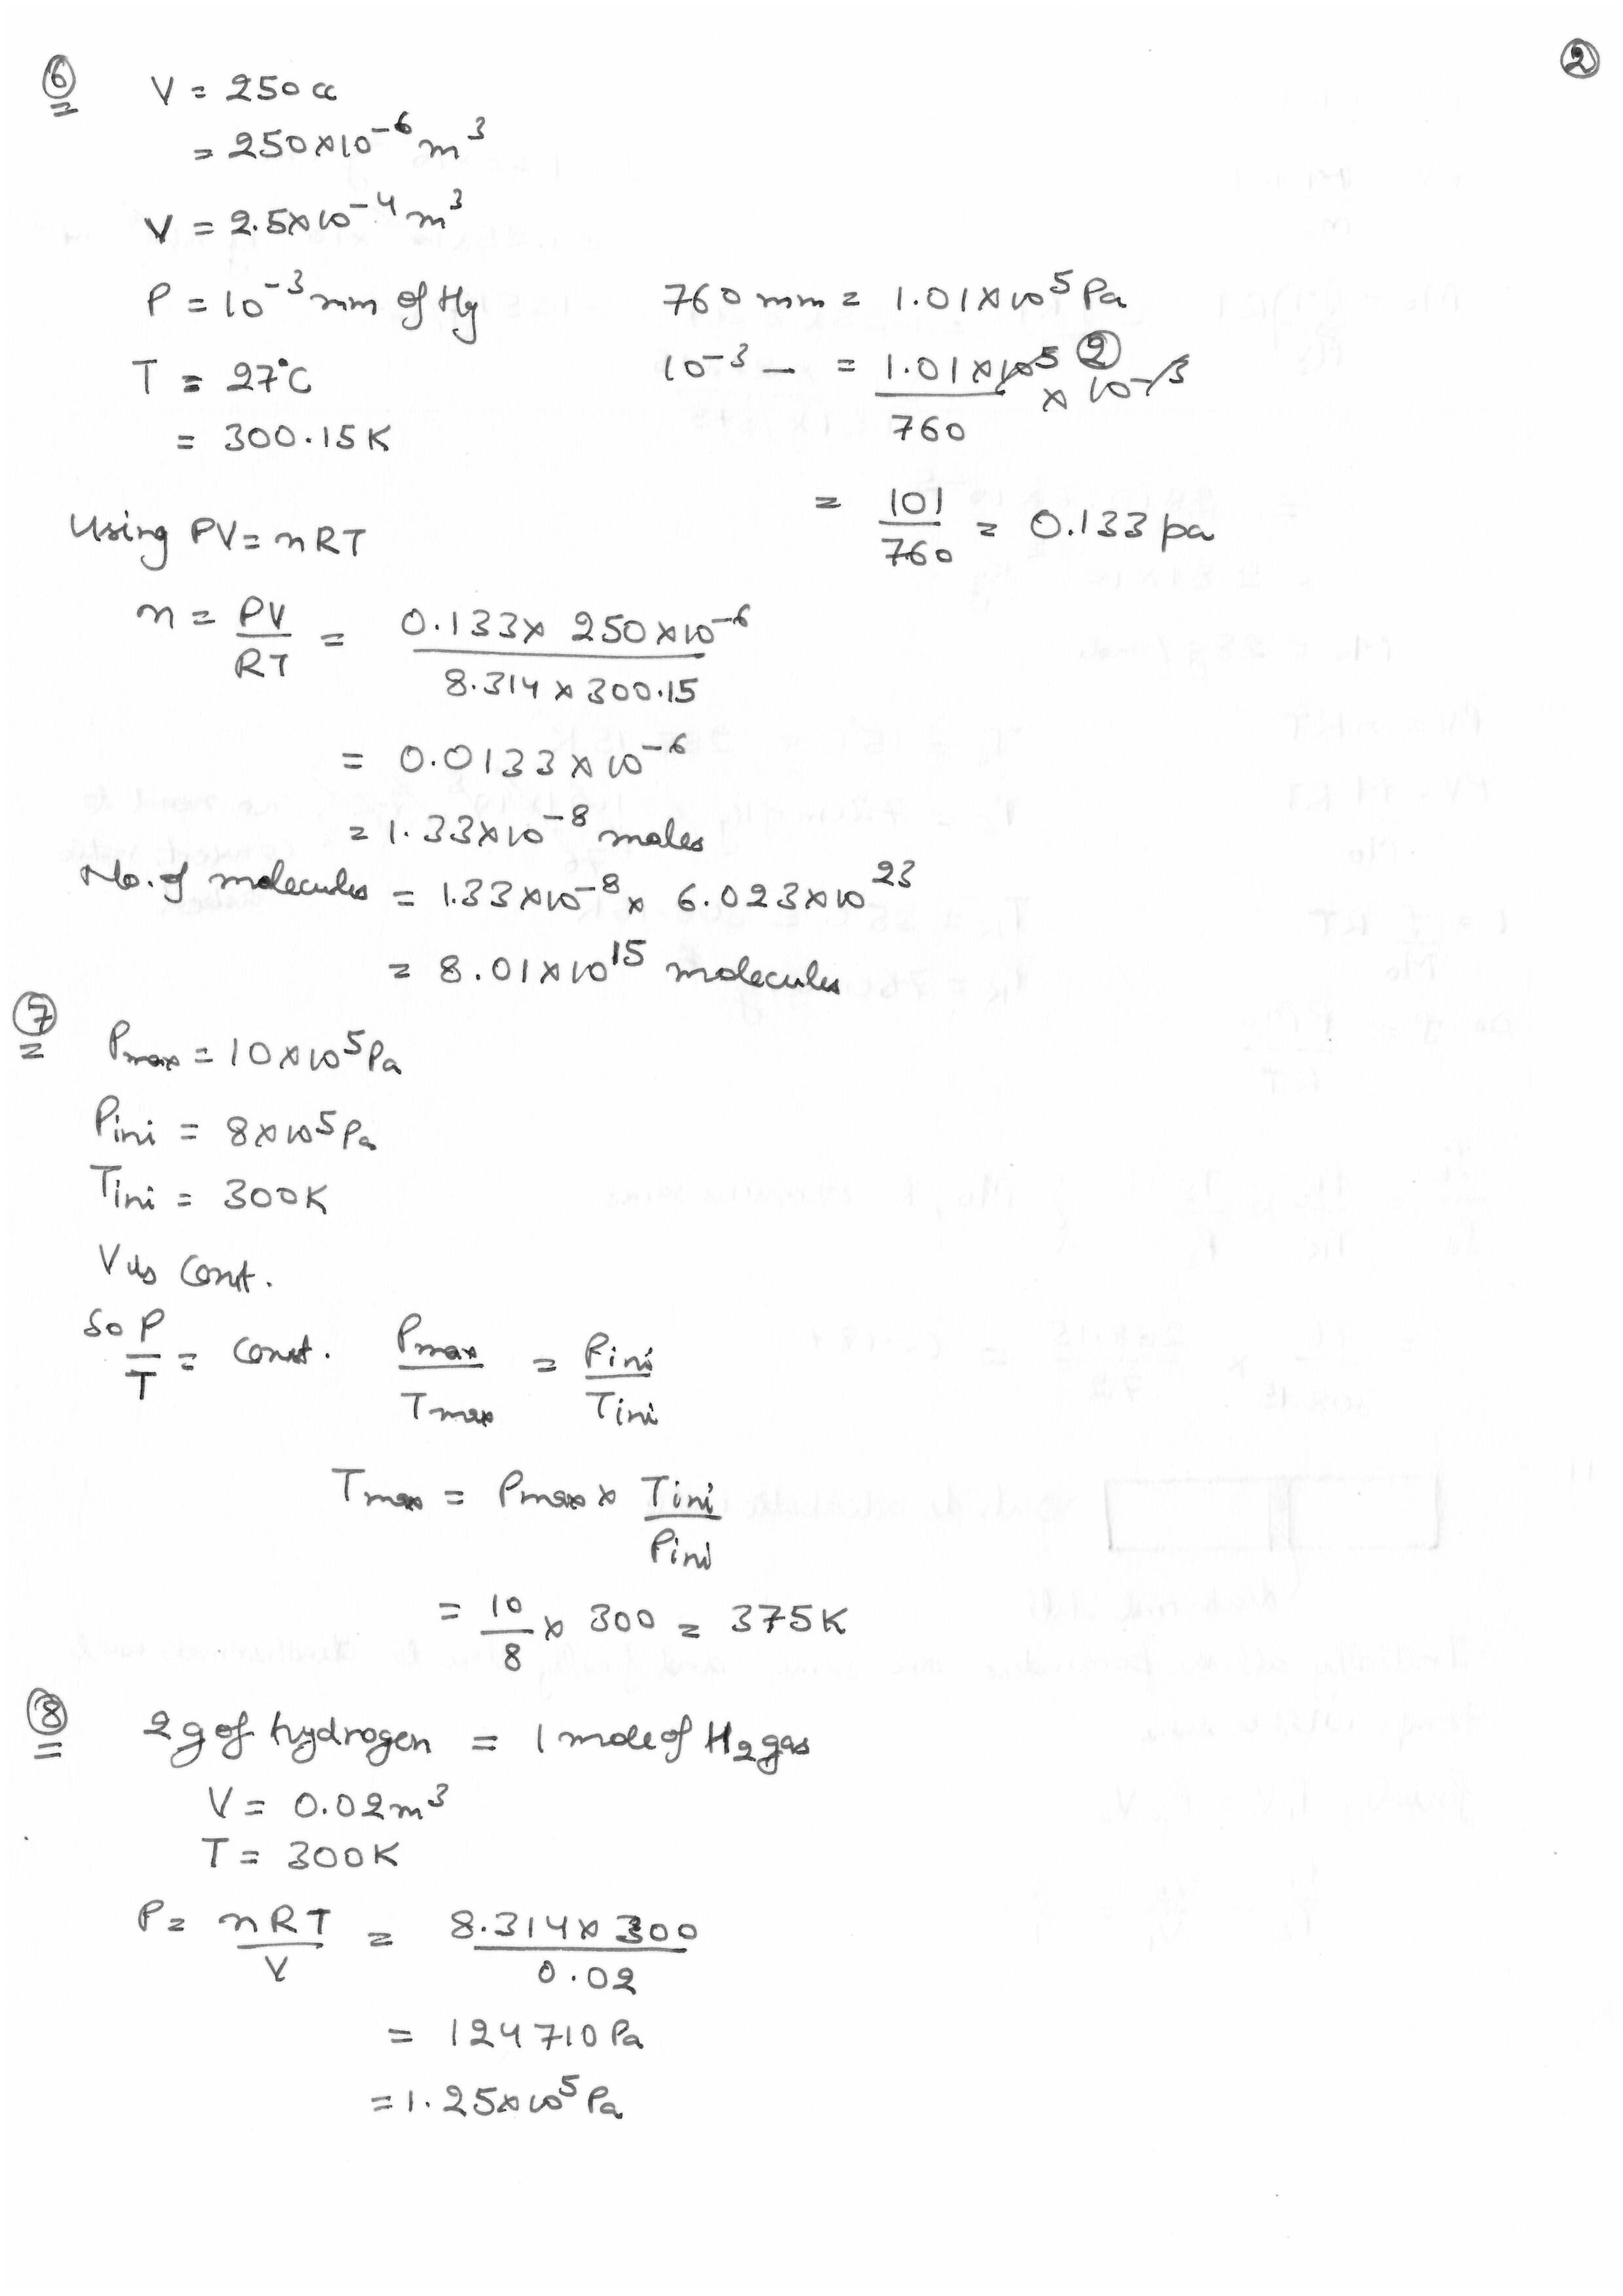 ②
⑥ V = 250 cc
= 250 × 10⁻⁶ m³
V = 2.5 × 10⁻⁴ m³
P = 10⁻³ mm of Hg
760 mm = 1.01 × 10⁵ Pa
T = 27°C
10⁻³ — = 1.01 × 10⁵ ② × 10⁻³ / 760
= 300.15 K
= 101/760 = 0.133 pa
Using PV = nRT
n = PV/RT = 0.133 × 250 × 10⁻⁶ / 8.314 × 300.15
= 0.0133 × 10⁻⁶
= 1.33 × 10⁻⁸ moles
No. of molecules = 1.33 × 10⁻⁸ × 6.023 × 10²³
= 8.01 × 10¹⁵ molecules
⑦ Pmax = 10 × 10⁵ Pa
Pini = 8 × 10⁵ Pa
Tini = 300 K
V is const.
So P/T = const. Pmax/Tmax = Pini/Tini
Tmax = Pmax × Tini/Pini
= 10/8 × 300 = 375 K
⑧ 2g of hydrogen = 1 mole of H₂ gas
V = 0.02 m³
T = 300 K
P = nRT/V = 8.314 × 300 / 0.02
= 124710 Pa
= 1.25 × 10⁵ Pa